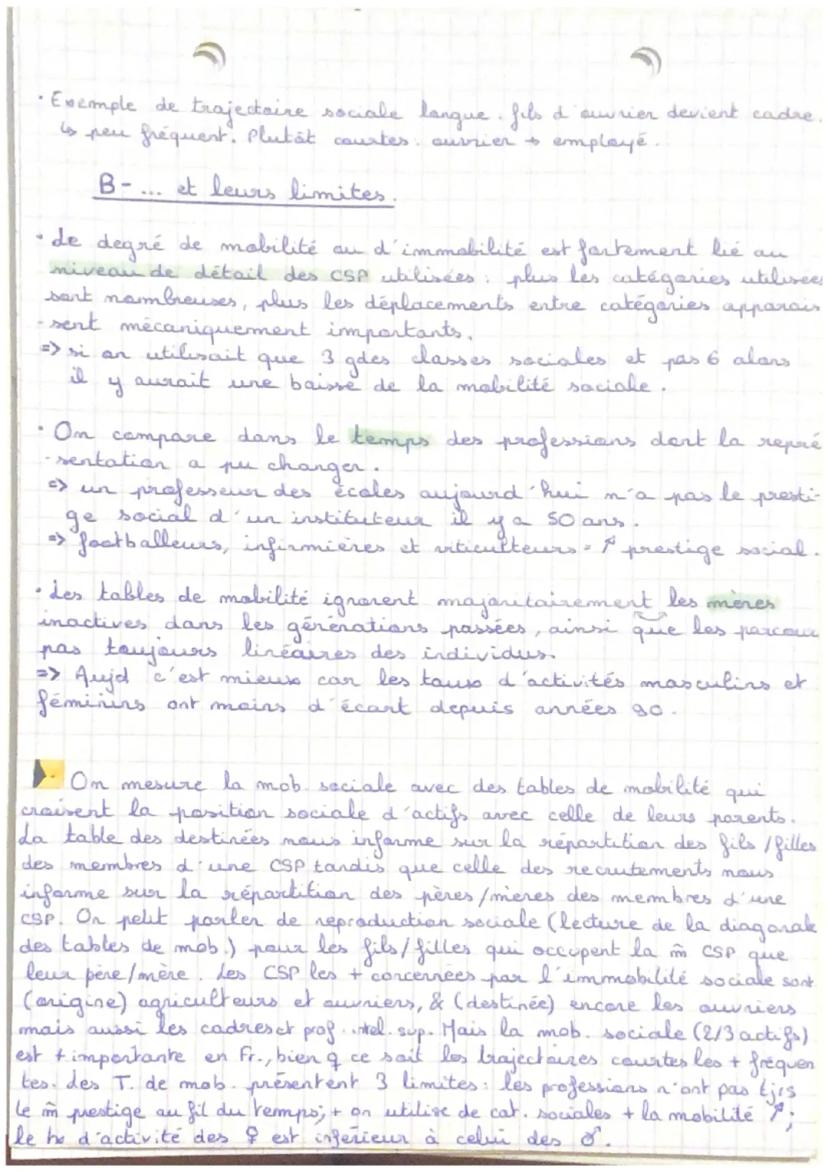 · Exemple de trajectoire sociale longue : fils d'ouvrier devient cadre.
↳ peu fréquent. Plutôt courtes : ouvrier → employé.
B - ... et leurs limites.
· Le degré de mobilité ou d'immobilité est fortement lié au
niveau de détail des CSP utilisées : plus les catégories utilisées
sont nombreuses, plus les déplacements entre catégories apparais
-sent mécaniquement importants.
=> si on utilisait que 3 gdes classes sociales et pas 6 alors
il y aurait une baisse de la mobilité sociale.
· On compare dans le temps des professions dont la repré
-sentation a pu changer.
=> un professeur des écoles aujourd'hui n'a pas le presti-
ge social d'un instituteur il y a 50 ans.
=> footballeurs, infirmières et viticulteurs = ↗ prestige social.
· Les tables de mobilité ignorent majoritairement les mères
inactives dans les générations passées, ainsi que les parcour
pas toujours linéaires des individus.
=> Aujd c'est mieux car les taux d'activités masculins et
féminins ont moins d'écart depuis années 90.
On mesure la mob. sociale avec des tables de mobilité qui
croisent la position sociale d'actifs avec celle de leurs parents.
La table des destinées nous informe sur la répartition des fils/filles
des membres d'une CSP tandis que celle des recrutements nous
informe sur la répartition des pères/mères des membres d'une
CSP. On peut parler de reproduction sociale (lecture de la diagonale
des tables de mob.) pour les fils/filles qui occupent la m̂ CSP que
leur père/mère. Les CSP les + concernées par l'immobilité sociale sont
(origine) agriculteurs et ouvriers, & (destinée) encore les ouvriers
mais aussi les cadres et prof. intel. sup. Mais la mob. sociale (2/3 actifs)
est + importante en Fr., bien q ce soit les trajectoires courtes les + fréquen
tes. Les T. de mob. présentent 3 limites : les professions n'ont pas tjrs
le m̂ prestige au fil du temps; + on utilise de cat. sociales + la mobilité ↗;
le d'activité des ♀ est inférieur à celui des ♂.